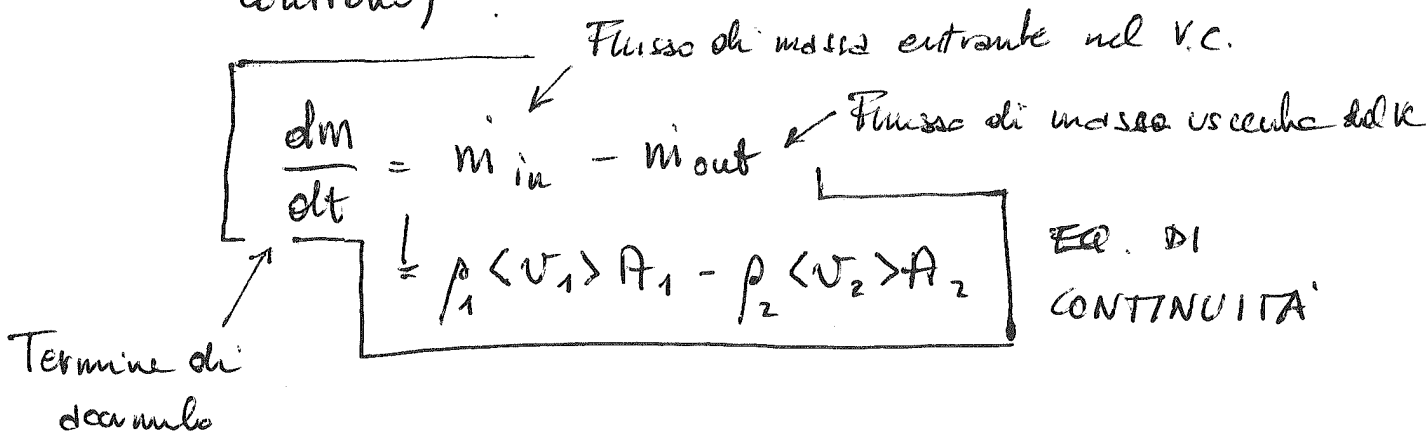 controllo)
Flusso di massa entrante nel V.C.
dm/dt = ṁ in - ṁ out
Flusso di massa uscente dal VC
= ρ₁ <v₁> A₁ - ρ₂ <v₂> A₂
EQ. DI
CONTINUITA'
Termine di
accumulo